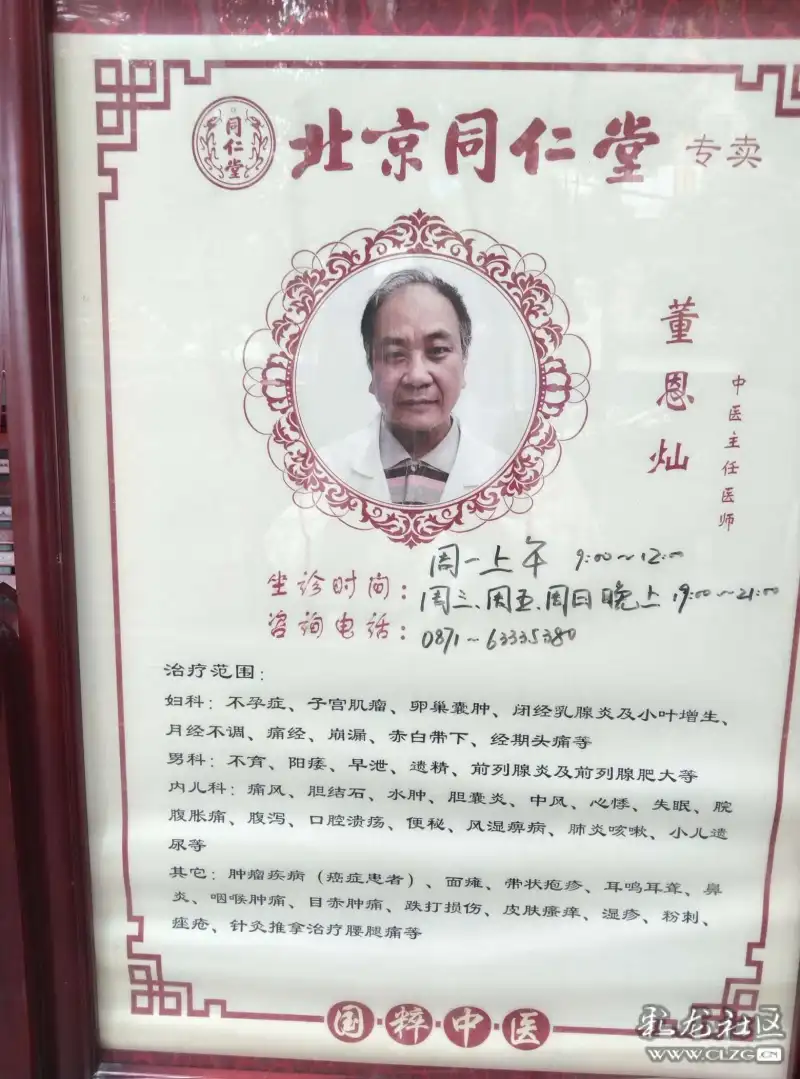 同仁堂
北京同仁堂 专卖
董恩灿
中医主任医师
坐诊时间：周一上午 9:00～12:00
周三、周五、周日晚上 19:00～21:00
咨询电话：0871～63335380
治疗范围：
妇科：不孕症、子宫肌瘤、卵巢囊肿、闭经乳腺炎及小叶增生、
月经不调、痛经、崩漏、赤白带下、经期头痛等
男科：不育、阳痿、早泄、遗精、前列腺炎及前列腺肥大等
内儿科：痛风、胆结石、水肿、胆囊炎、中风、心悸、失眠、脘
腹胀痛、腹泻、口腔溃疡、便秘、风湿痹病、肺炎咳嗽、小儿遗
尿等
其它：肿瘤疾病（癌症患者）、面瘫、带状疱疹、耳鸣耳聋、鼻
炎、咽喉肿痛、目赤肿痛、跌打损伤、皮肤瘙痒、湿疹、粉刺、
痤疮、针灸推拿治疗腰腿痛等
国·粹·中·医
彩龙社区
www.CLZG.CN